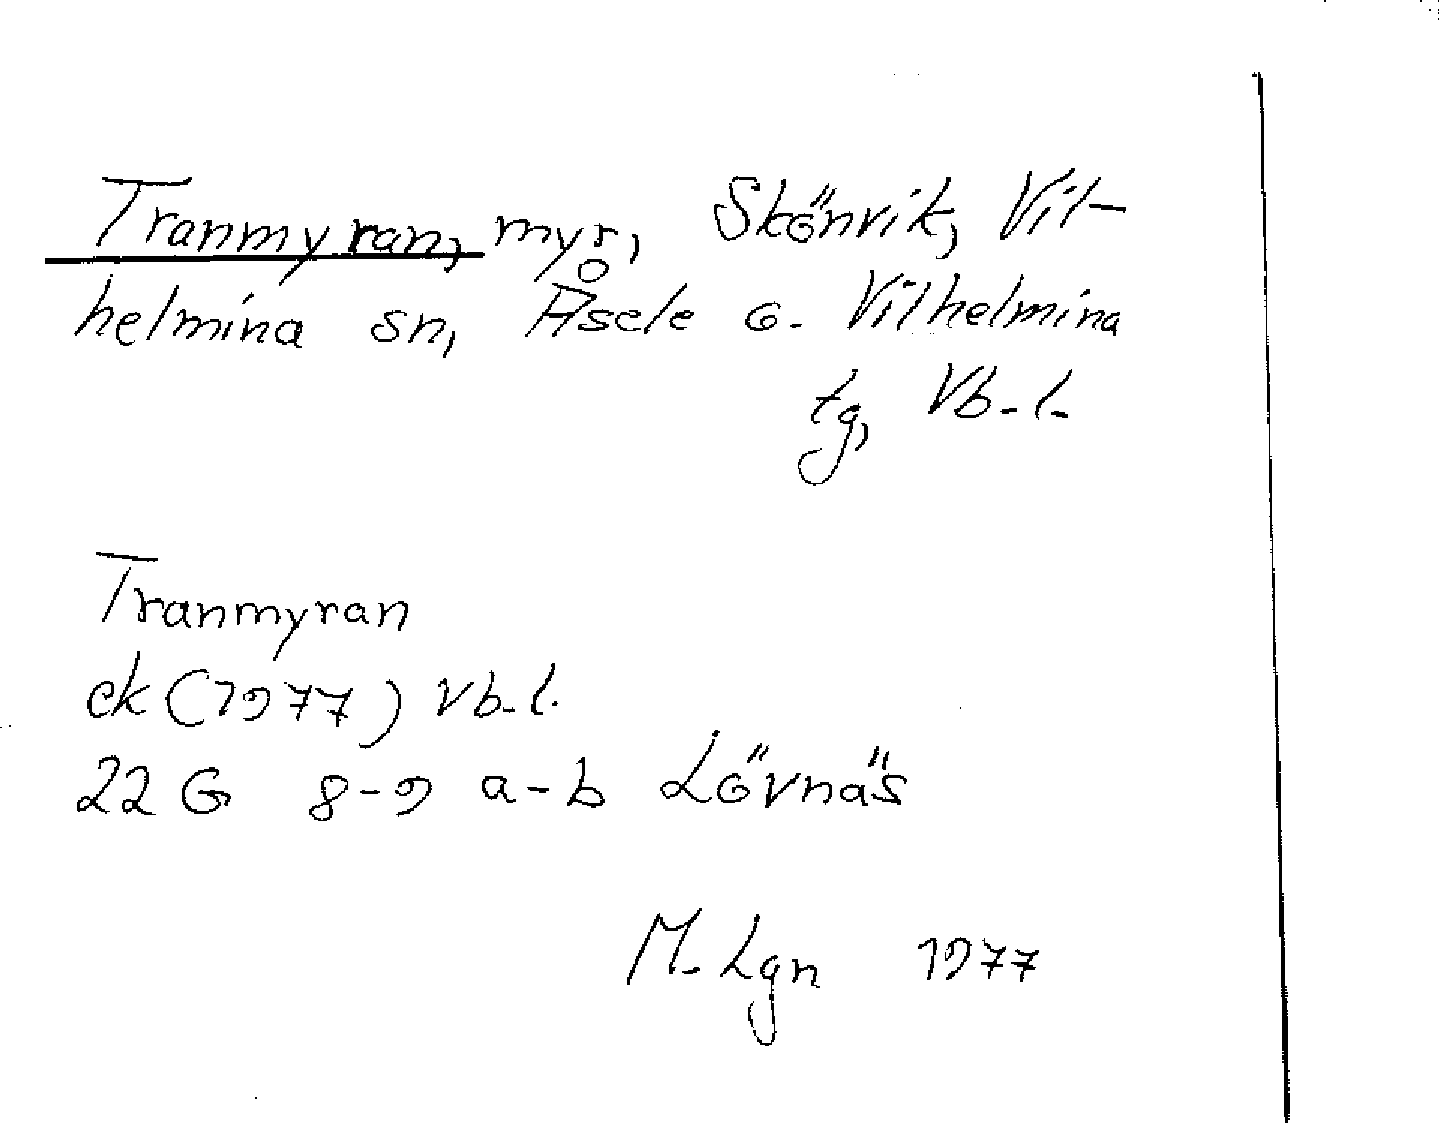 Tranmyran, myr, Skönvik, Vil-
helmina sn, Åsele o. Vilhelmina
tg, Vb-l.
Tranmyran
ek (1977) Vb-l.
22 G 8-9 a-b Lövnäs
M. Lgn 1977